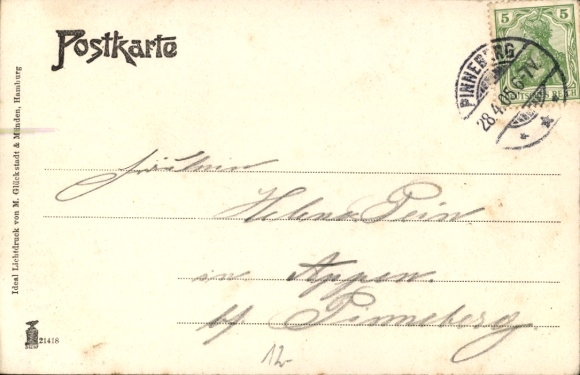 Postkarte
5 5
PINNEBERG
28.4.05.6-7N.
Ideal Lichtdruck von M. Glückstadt & Münden, Hamburg
Fräulein
Helene Pein
in Appen.
b/ Pinneberg.
12-
21418